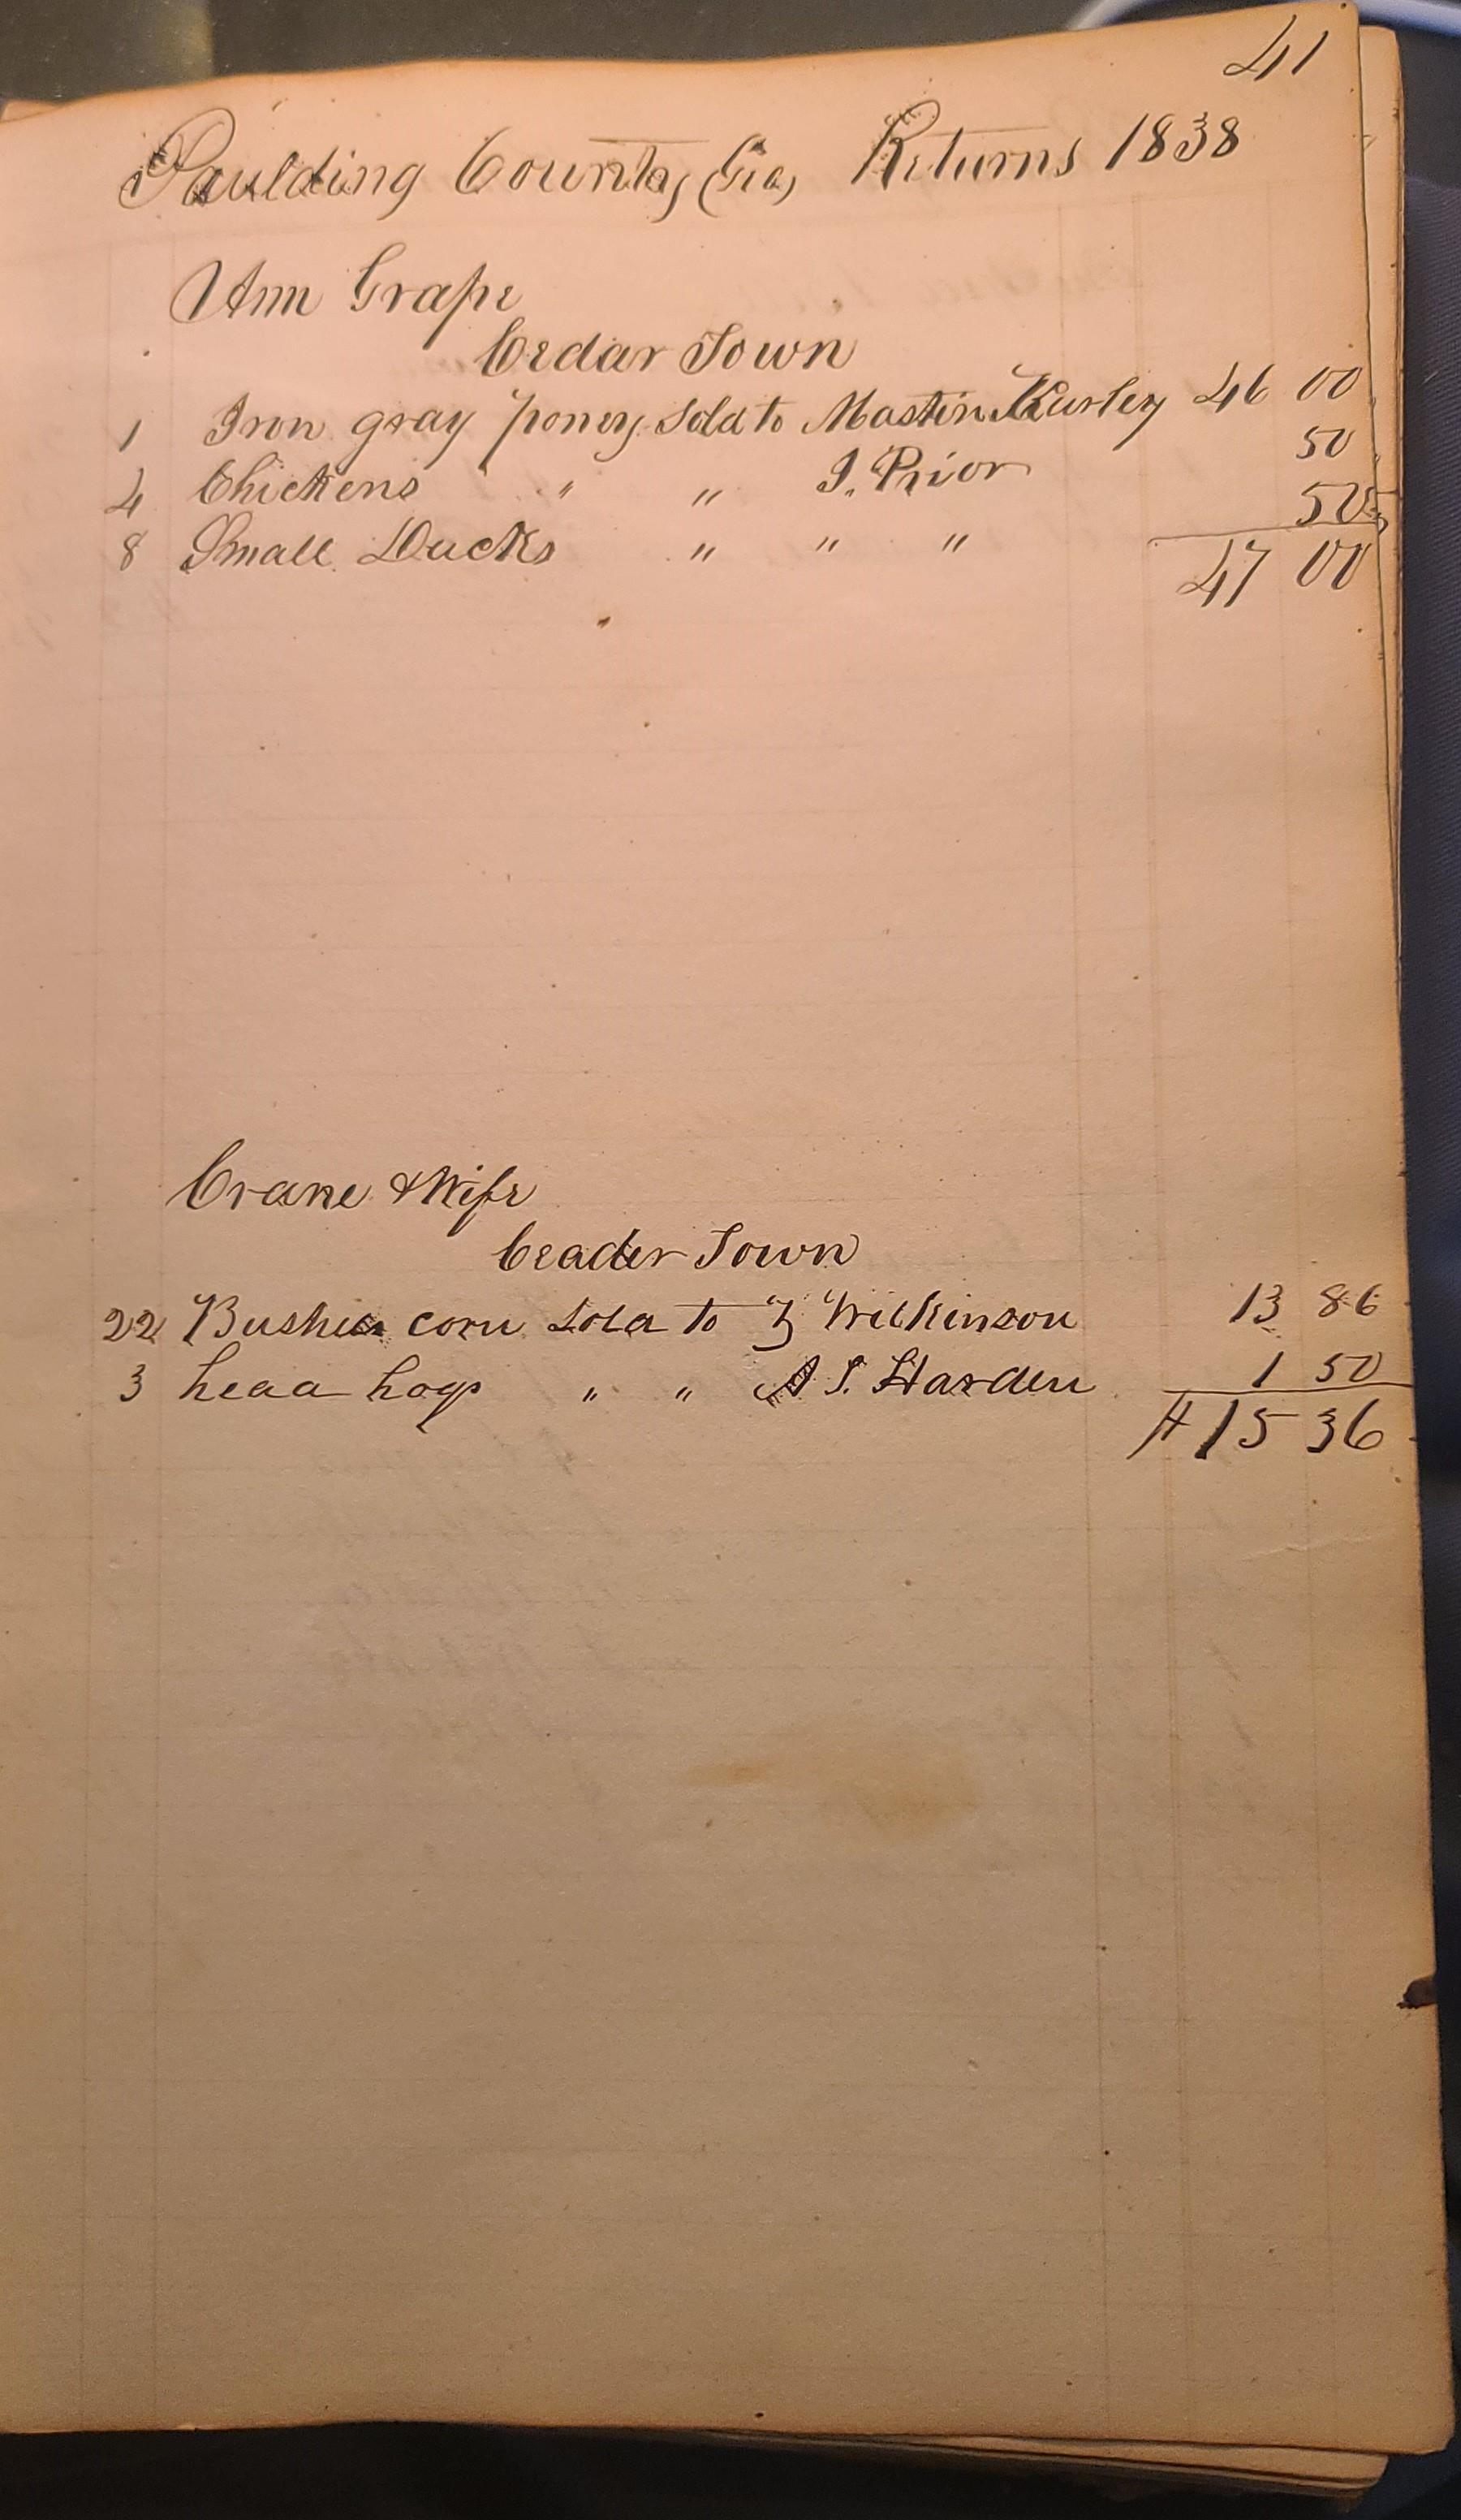 41
Paulding County, Gia, Returns 1838
Ann Grape
Cedar Town
1 Iron gray poney Sold to Mastin 46 00
4 Chickens " " J. Prior 50
8 Small Ducks " " " 50
47 00
Crane & Wife
Ceader Town
22 Bushels corn Sold to Z Wilkinson 13 86
3 head hogs " " A S. Harden 1 50
15 36